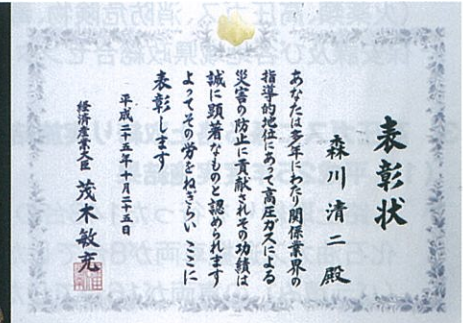 表彰状
森川清二殿
あなたは多年にわたり関係業界の
指導的地位にあって高圧ガスによる
災害の防止に貢献されその功績は
誠に顕著なものと認められます
よってその労をねぎらい ここに
表彰します
平成二十五年十月二十五日
経済産業大臣 茂木敏充